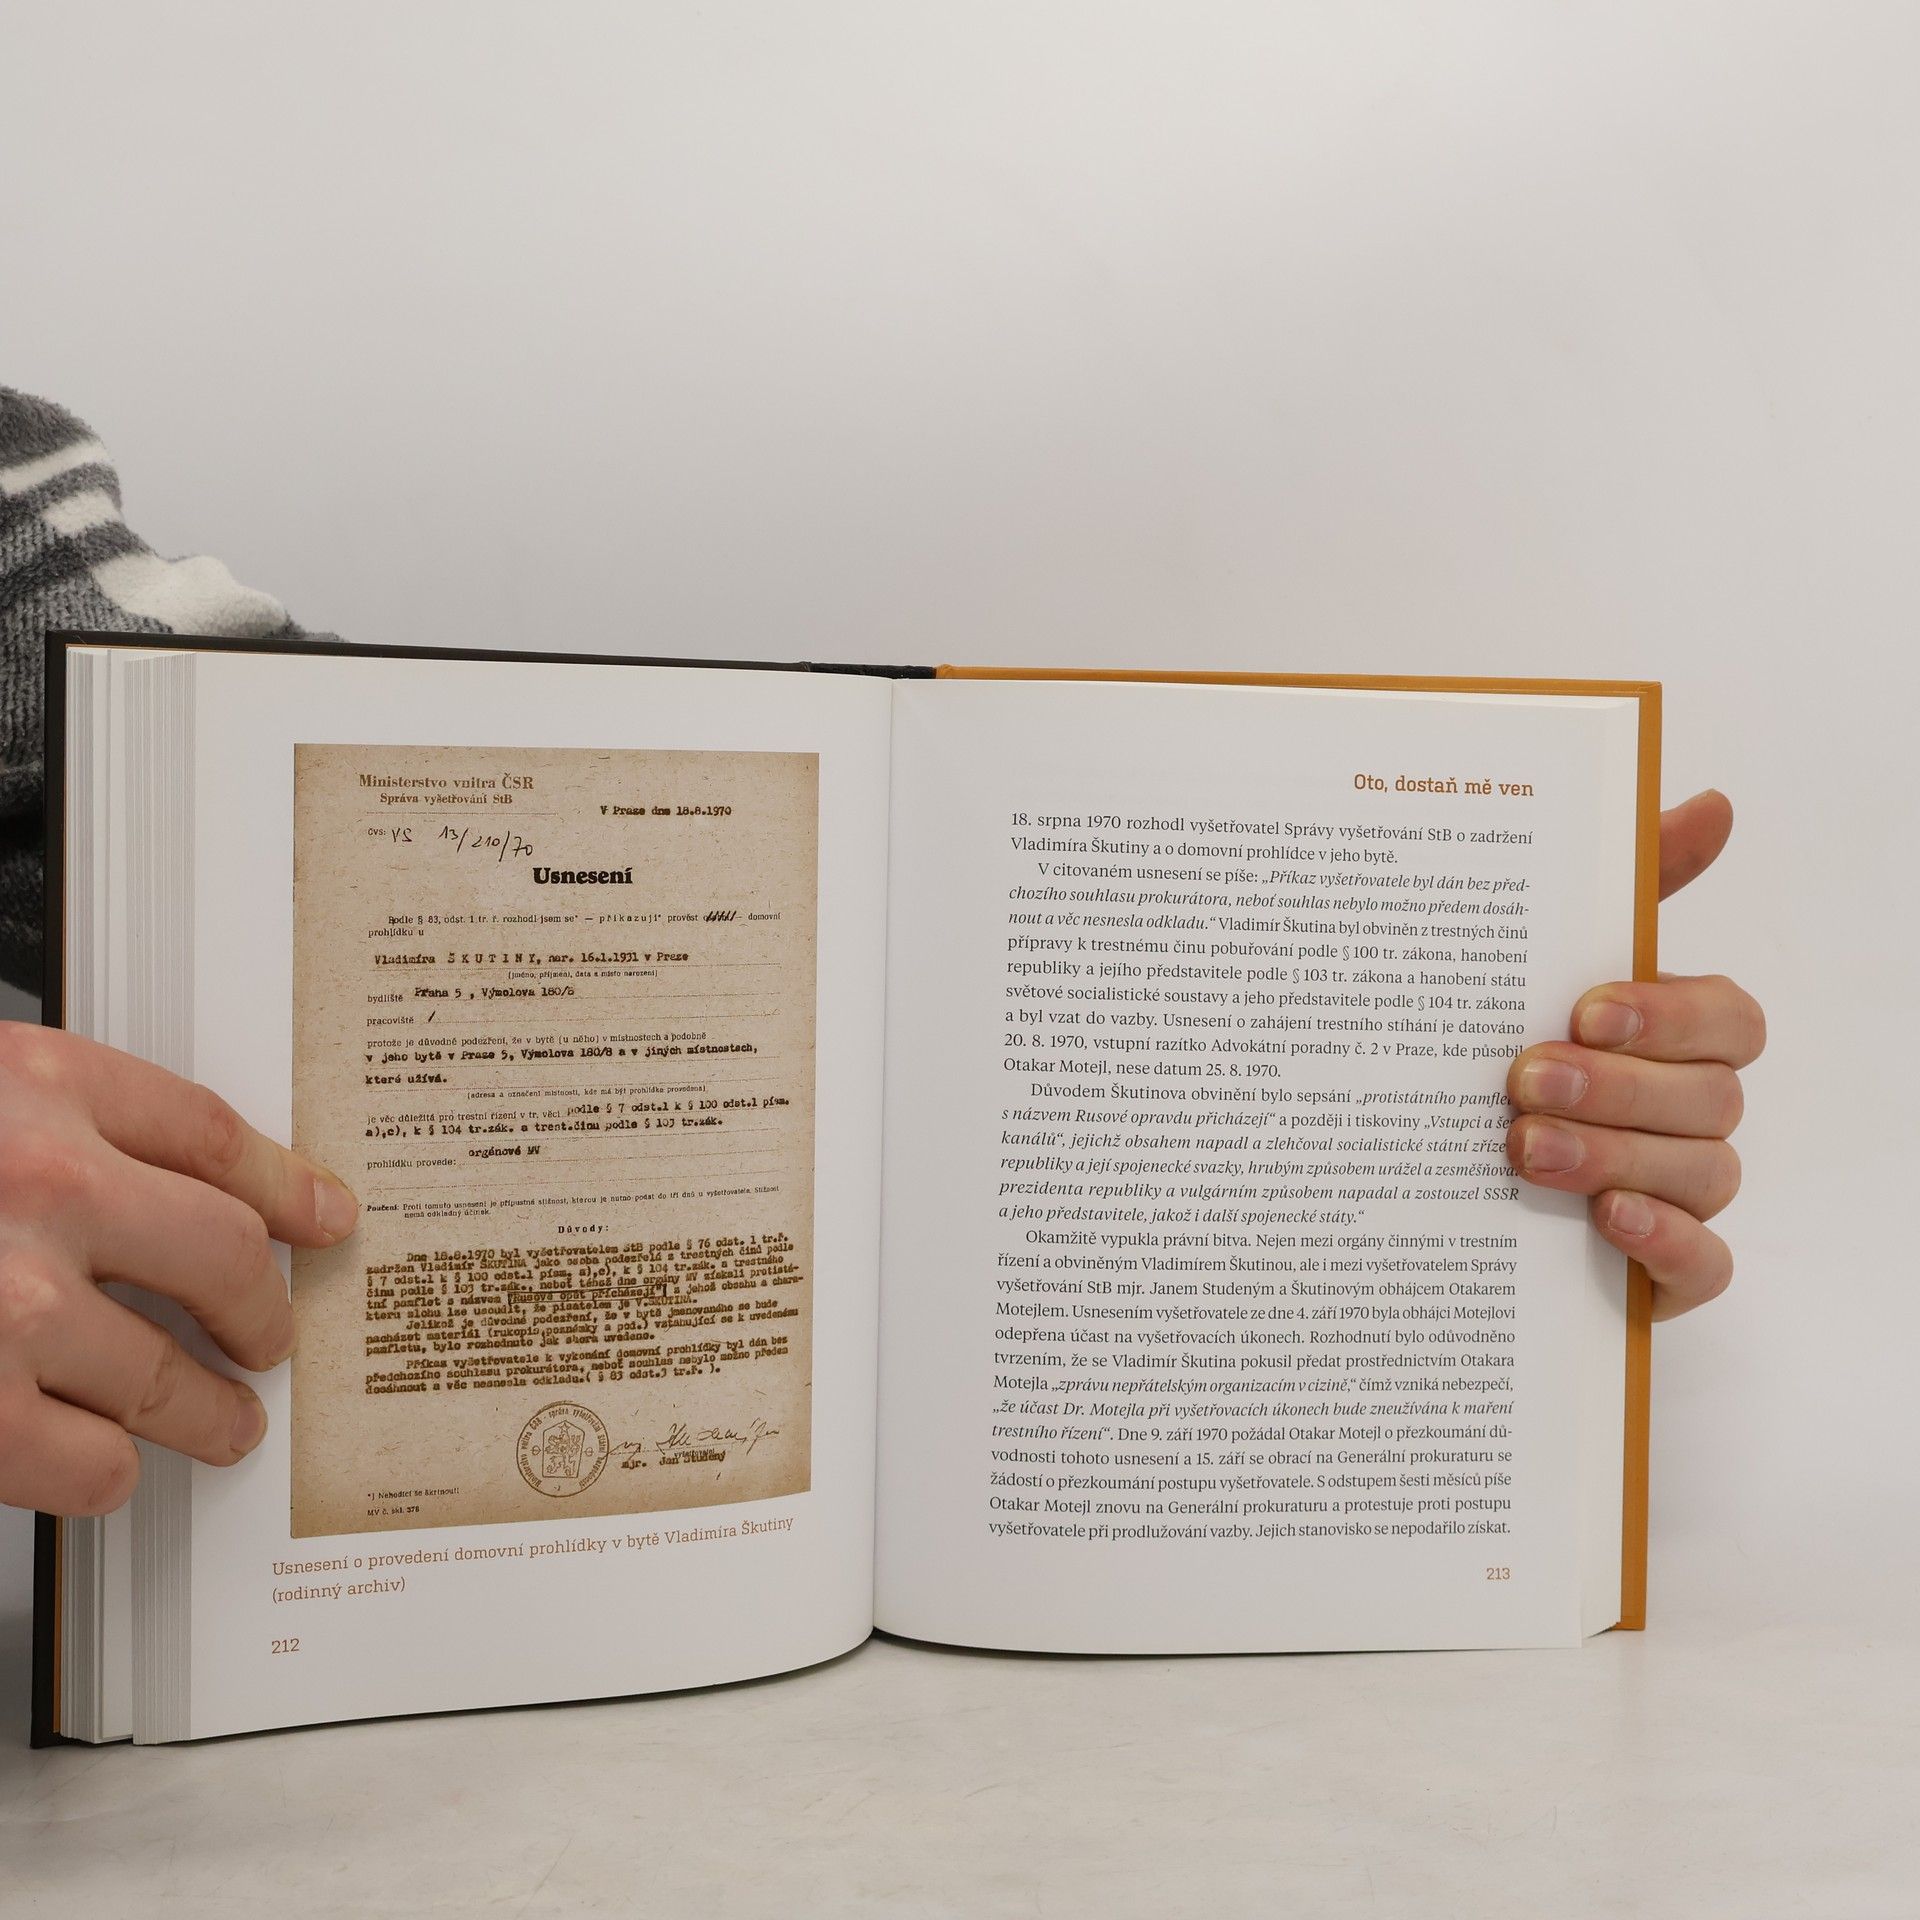 Ministerstvo vnitra ČSR
Správa vyšetřování StB
V Praze dne 18.8.1970
ČVS: VS 13/210/70
Usnesení
Podle § 83, odst. 1 tr. ř. rozhodl jsem se* — přikazuji* provést domovní
prohlídku u
Vladimíra ŠKUTINY, nar. 16.1.1931 v Praze
(jméno, příjmení, data a místo narození)
bydliště Praha 5 , Výmolova 180/8
pracoviště /
protože je důvodné podezření, že v bytě (u něho) v místnostech a podobně
v jeho bytě v Praze 5, Výmolova 180/8 a v jiných místnostech,
které užívá.
(adresa a označení místnosti, kde má být prohlídka provedena)
je věc důležitá pro trestní řízení v tr. věci podle § 7 odst.1 k § 100 odst.1 písm.
a),c), k § 104 tr.zák. a trest.činu podle § 103 tr.zák.
orgánové MV
prohlídku provede:
Poučení: Proti tomuto usnesení je přípustná stížnost, kterou je nutno podat do tří dnů u vyšetřovatele. Stížnost
nemá odkladný účinek.
Důvody:
Dne 18.8.1970 byl vyšetřovatelem StB podle § 76 odst. 1 tr.ř.
zadržen Vladimír ŠKUTINA jako osoba podezřelá z trestných činů podle
§ 7 odst.1 k § 100 odst.1 písm. a),c), k § 104 tr.zák. a trestného
činu podle § 103 tr.zák., neboť téhož dne orgány MV získali protistá-
tní pamflet s názvem "Rusové opět přicházejí" z jehož obsahu a chara-
kteru slohu lze usoudit, že pisatelem je V.ŠKUTINA.
Jelikož je důvodné podezření, že v bytě jmenovaného se bude
nacházet materiál (rukopis,poznámky a pod.) vztahující se k uvedenému
pamfletu, bylo rozhodnuto jak shora uvedeno.
Příkaz vyšetřovatele k vykonání domovní prohlídky byl dán bez
předchozího souhlasu prokurátora, neboť souhlas nebylo možno předem
dosáhnout a věc nesnesla odkladu.( § 83 odst.3 tr.ř. ).
vyšetřovatel
mjr. Jan Studený
*) Nehodící se škrtnouti
MV č. skl. 378
Usnesení o provedení domovní prohlídky v bytě Vladimíra Škutiny
(rodinný archiv)
212
Oto, dostaň mě ven
18. srpna 1970 rozhodl vyšetřovatel Správy vyšetřování StB o zadržení
Vladimíra Škutiny a o domovní prohlídce v jeho bytě.
V citovaném usnesení se píše: „Příkaz vyšetřovatele byl dán bez před-
chozího souhlasu prokurátora, neboť souhlas nebylo možno předem dosáh-
nout a věc nesnesla odkladu.“ Vladimír Škutina byl obviněn z trestných činů
přípravy k trestnému činu pobuřování podle § 100 tr. zákona, hanobení
republiky a jejího představitele podle § 103 tr. zákona a hanobení státu
světové socialistické soustavy a jeho představitele podle § 104 tr. zákona
a byl vzat do vazby. Usnesení o zahájení trestního stíhání je datováno
20. 8. 1970, vstupní razítko Advokátní poradny č. 2 v Praze, kde působil
Otakar Motejl, nese datum 25. 8. 1970.
Důvodem Škutinova obvinění bylo sepsání „protistátního pamfle
s názvem Rusové opravdu přicházejí“ a později i tiskoviny „Vstupci a še
kanálů“, jejichž obsahem napadl a zlehčoval socialistické státní zříze
republiky a její spojenecké svazky, hrubým způsobem urážel a zesměšňova
prezidenta republiky a vulgárním způsobem napadal a zostouzel SSSR
a jeho představitele, jakož i další spojenecké státy.“
Okamžitě vypukla právní bitva. Nejen mezi orgány činnými v trestním
řízení a obviněným Vladimírem Škutinou, ale i mezi vyšetřovatelem Správy
vyšetřování StB mjr. Janem Studeným a Škutinovým obhájcem Otakarem
Motejlem. Usnesením vyšetřovatele ze dne 4. září 1970 byla obhájci Motejlovi
odepřena účast na vyšetřovacích úkonech. Rozhodnutí bylo odůvodněno
tvrzením, že se Vladimír Škutina pokusil předat prostřednictvím Otakara
Motejla „zprávu nepřátelským organizacím v cizině,“ čímž vzniká nebezpečí,
„že účast Dr. Motejla při vyšetřovacích úkonech bude zneužívána k maření
trestního řízení“. Dne 9. září 1970 požádal Otakar Motejl o přezkoumání dů-
vodnosti tohoto usnesení a 15. září se obrací na Generální prokuraturu se
žádostí o přezkoumání postupu vyšetřovatele. S odstupem šesti měsíců píše
Otakar Motejl znovu na Generální prokuraturu a protestuje proti postupu
vyšetřovatele při prodlužování vazby. Jejich stanovisko se nepodařilo získat.
213